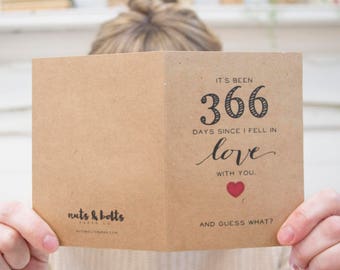 IT'S BEEN
366
DAYS SINCE I FELL IN
love
WITH YOU.
AND GUESS WHAT?
nuts & bolts
PAPER CO.